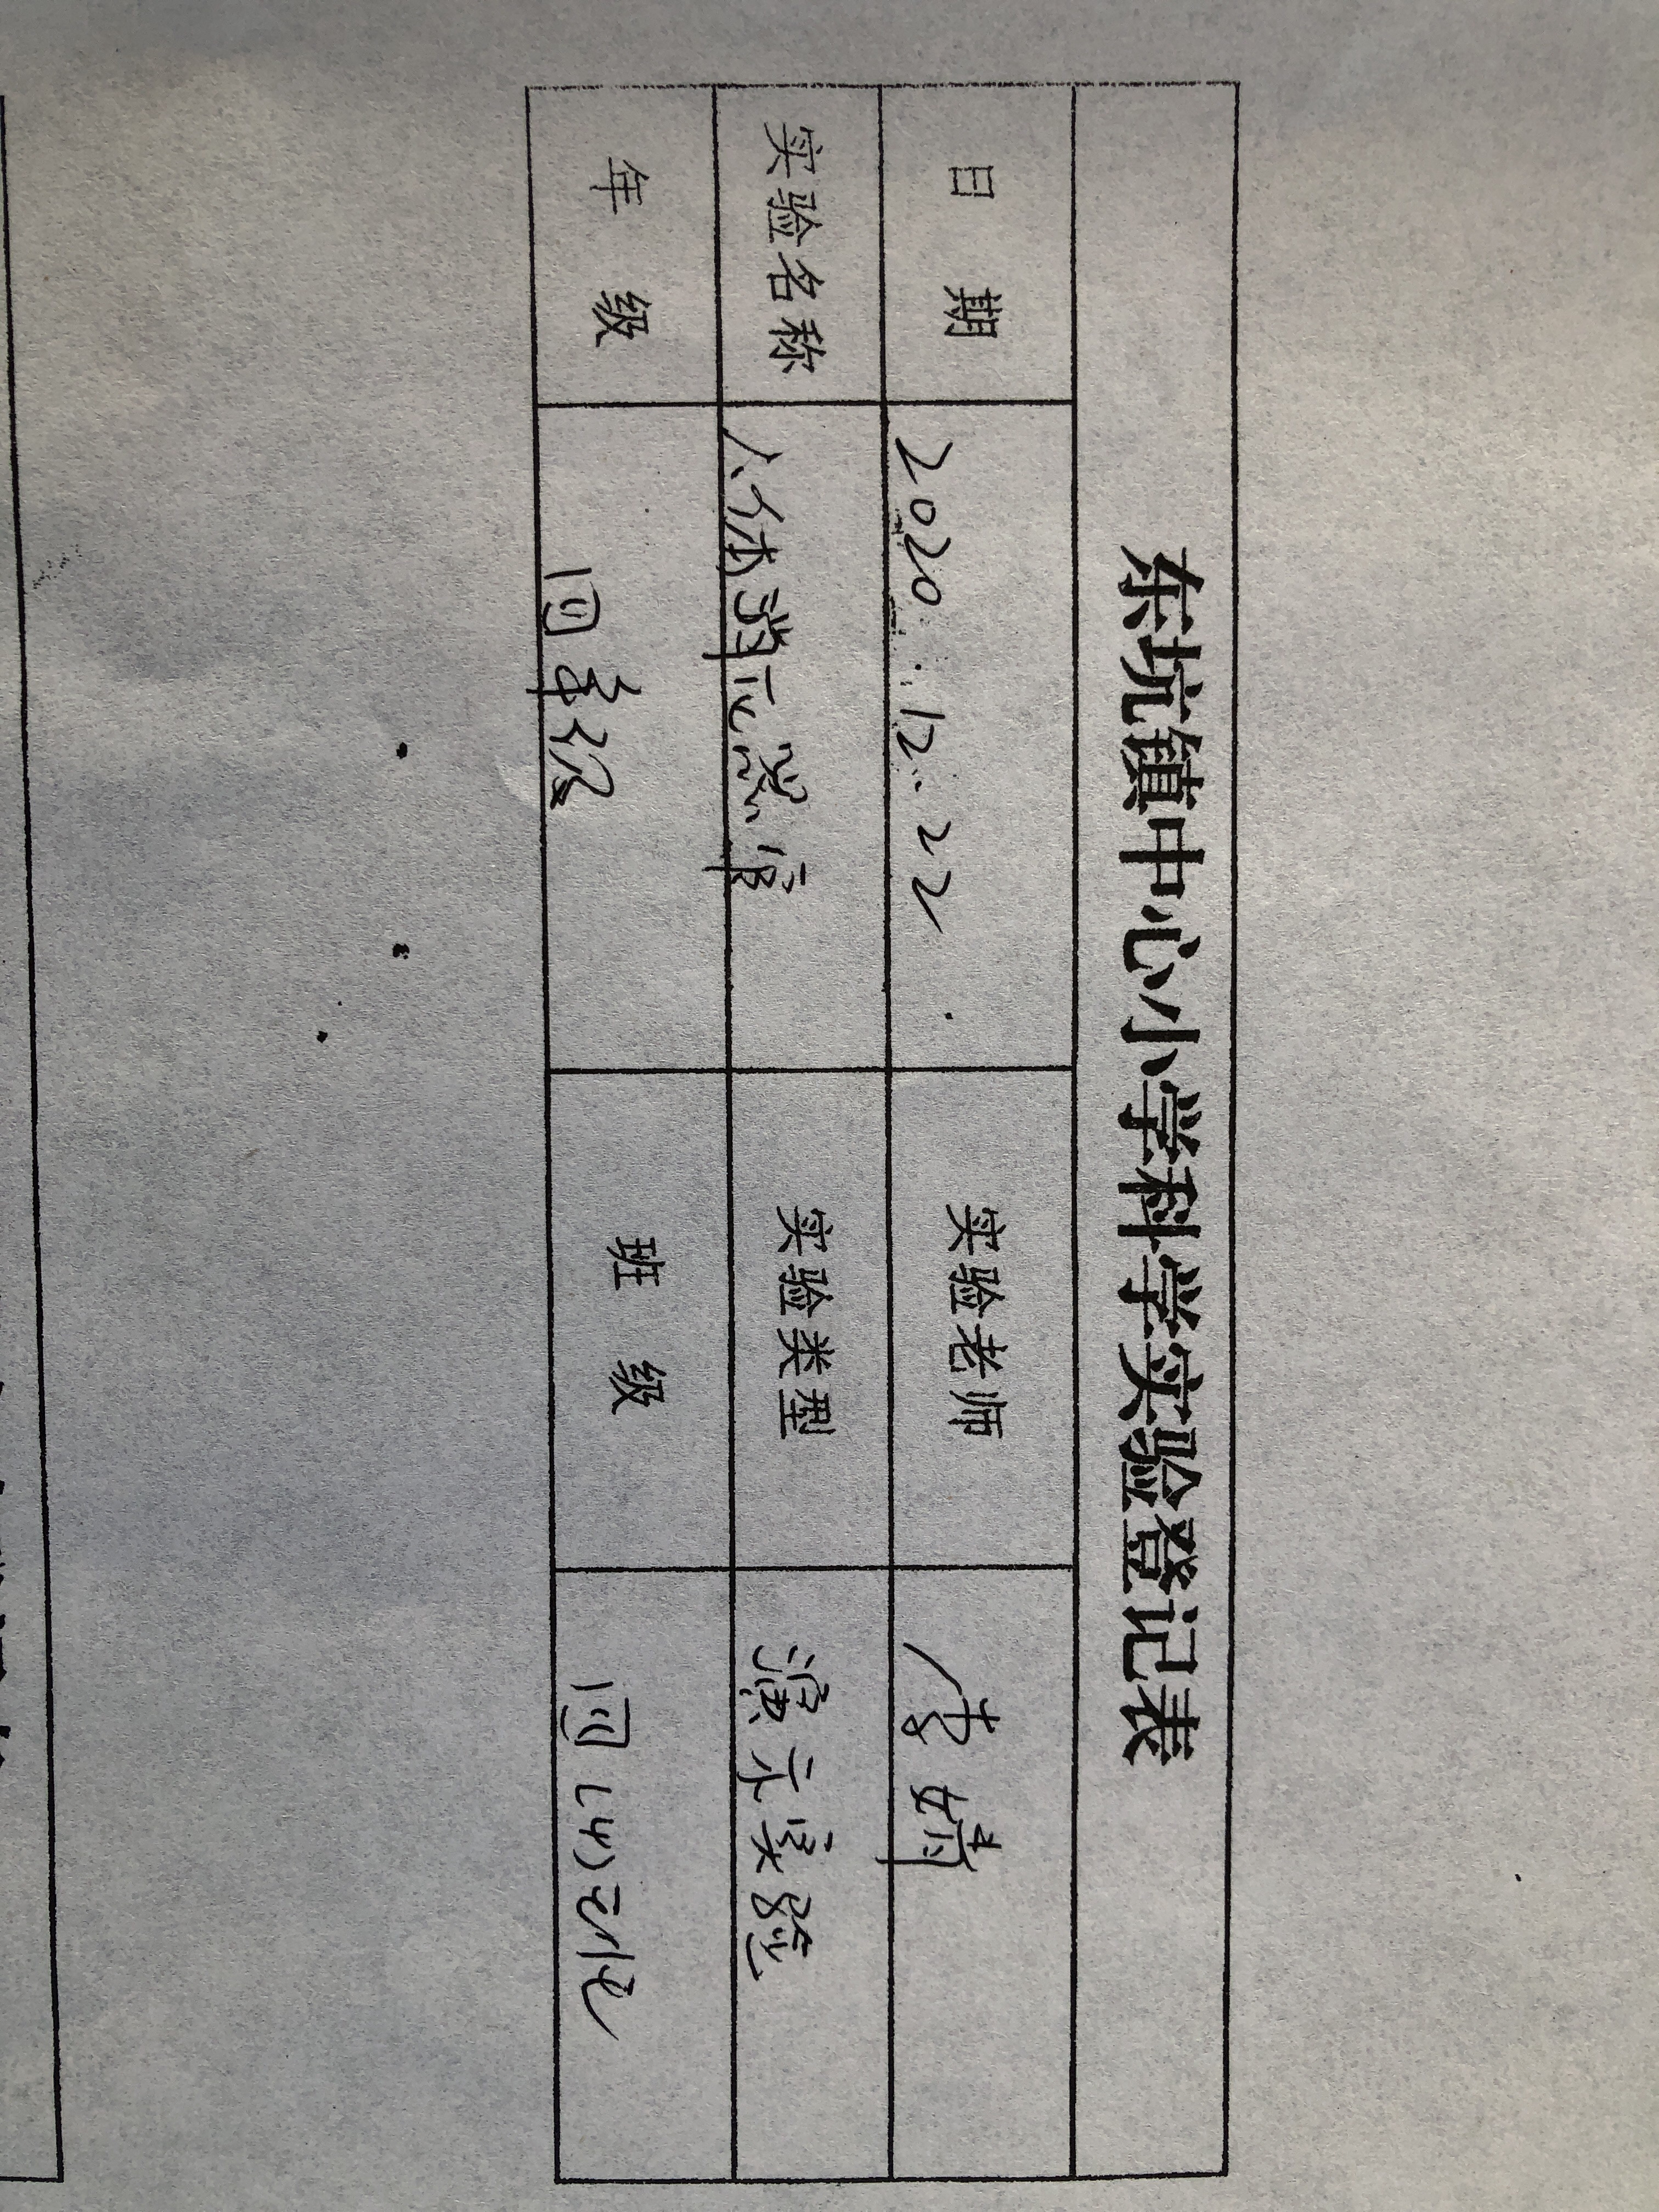 东坑镇中心小学科学实验登记表
日 期 2020.12.22. 实验老师 李婧
实验名称 人体消化器官 实验类型 演示实验
年 级 四年级 班 级 四(4)班